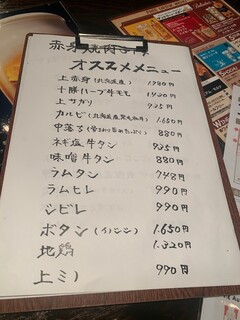 赤身焼肉
オススメメニュー
上赤身(北海道産) 1980円
十勝ハーブ牛モモ 1430円
上サガリ 935円
カルビ(北海道産黒毛和牛) 1.650円
中落ち(骨まわり旨みたっぷり) 880円
ネギ塩牛タン 935円
味噌牛タン 880円
ラムタン 748円
ラムヒレ 990円
シビレ 990円
ボタン(イノシシ) 1.650円
地鶏 1.320円
上ミノ 990円